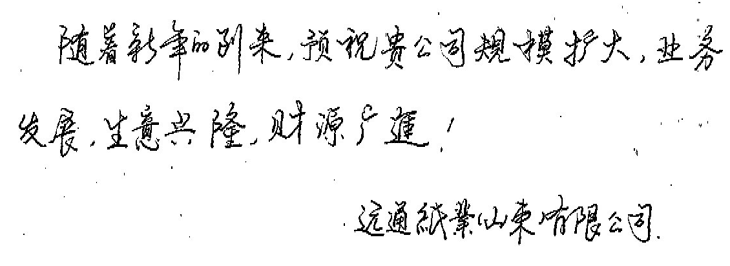 随着新年的到来,预祝贵公司规模扩大,业务
发展,生意兴隆,财源广進!
远通紙業山東有限公司.